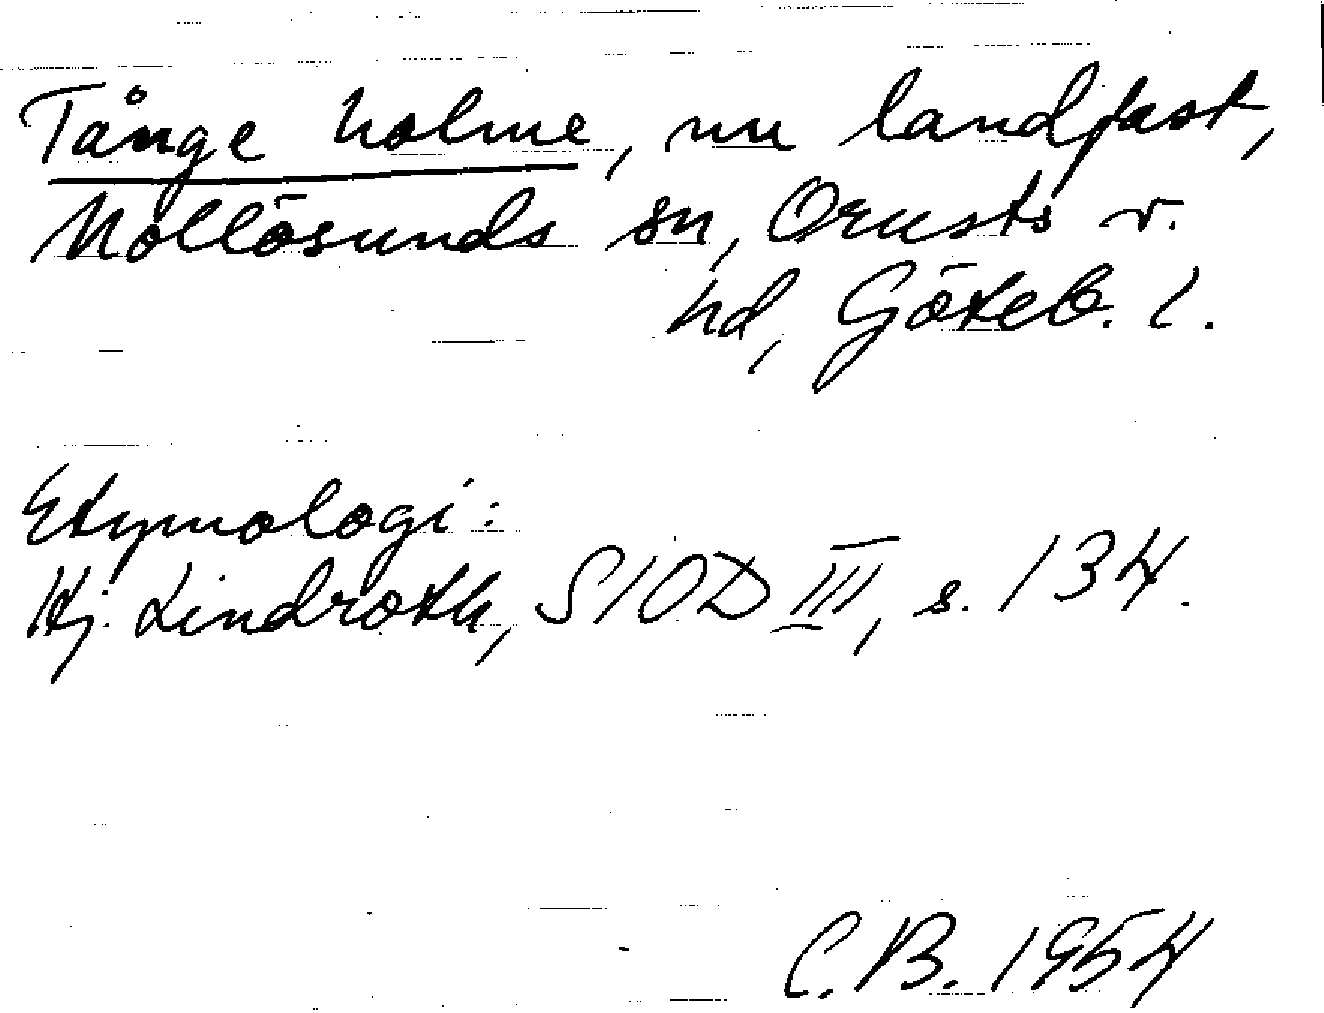 Tånge holme, nu landfast,
Mollösunds sn, Orusts v.
hd, Göteb. l.
Etymologi:
Hj. Lindroth, SIOD III, s. 134.
C.B. 1954